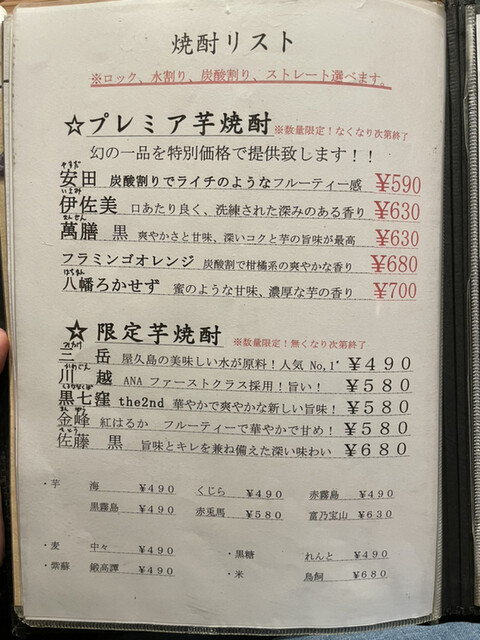 焼酎リスト
※ロック、水割り、炭酸割り、ストレート選べます。
☆プレミア芋焼酎 ※数量限定！なくなり次第終了
幻の一品を特別価格で提供致します！！
やすだ
安田 炭酸割りでライチのようなフルーティー感 ¥590
いさみ
伊佐美 口あたり良く、洗練された深みのある香り ¥630
まんぜん
萬膳 黒 爽やかさと甘味、深いコクと芋の旨味が最高 ¥630
フラミンゴオレンジ 炭酸割で柑橘系の爽やかな香り ¥680
はちまん
八幡ろかせず 蜜のような甘味、濃厚な芋の香り ¥700
☆限定芋焼酎 ※数量限定！無くなり次第終了
三 岳 屋久島の美味しい水が原料！人気 No,1 ¥490
川 越 ANA ファーストクラス採用！旨い！ ¥580
黒七窪 the2nd 華やかで爽やかな新しい旨味！ ¥580
金峰 紅はるか フルーティーで華やかで甘め！ ¥580
さとう
佐藤 黒 旨味とキレを兼ね備えた深い味わい ¥680
・芋 海 ¥490 くじら ¥490 赤霧島 ¥490
黒霧島 ¥490 赤兎馬 ¥580 富乃宝山 ¥630
・麦 中々 ¥490 ・黒糖 れんと ¥490
・紫蘇 鍛高譚 ¥490 ・米 鳥飼 ¥680